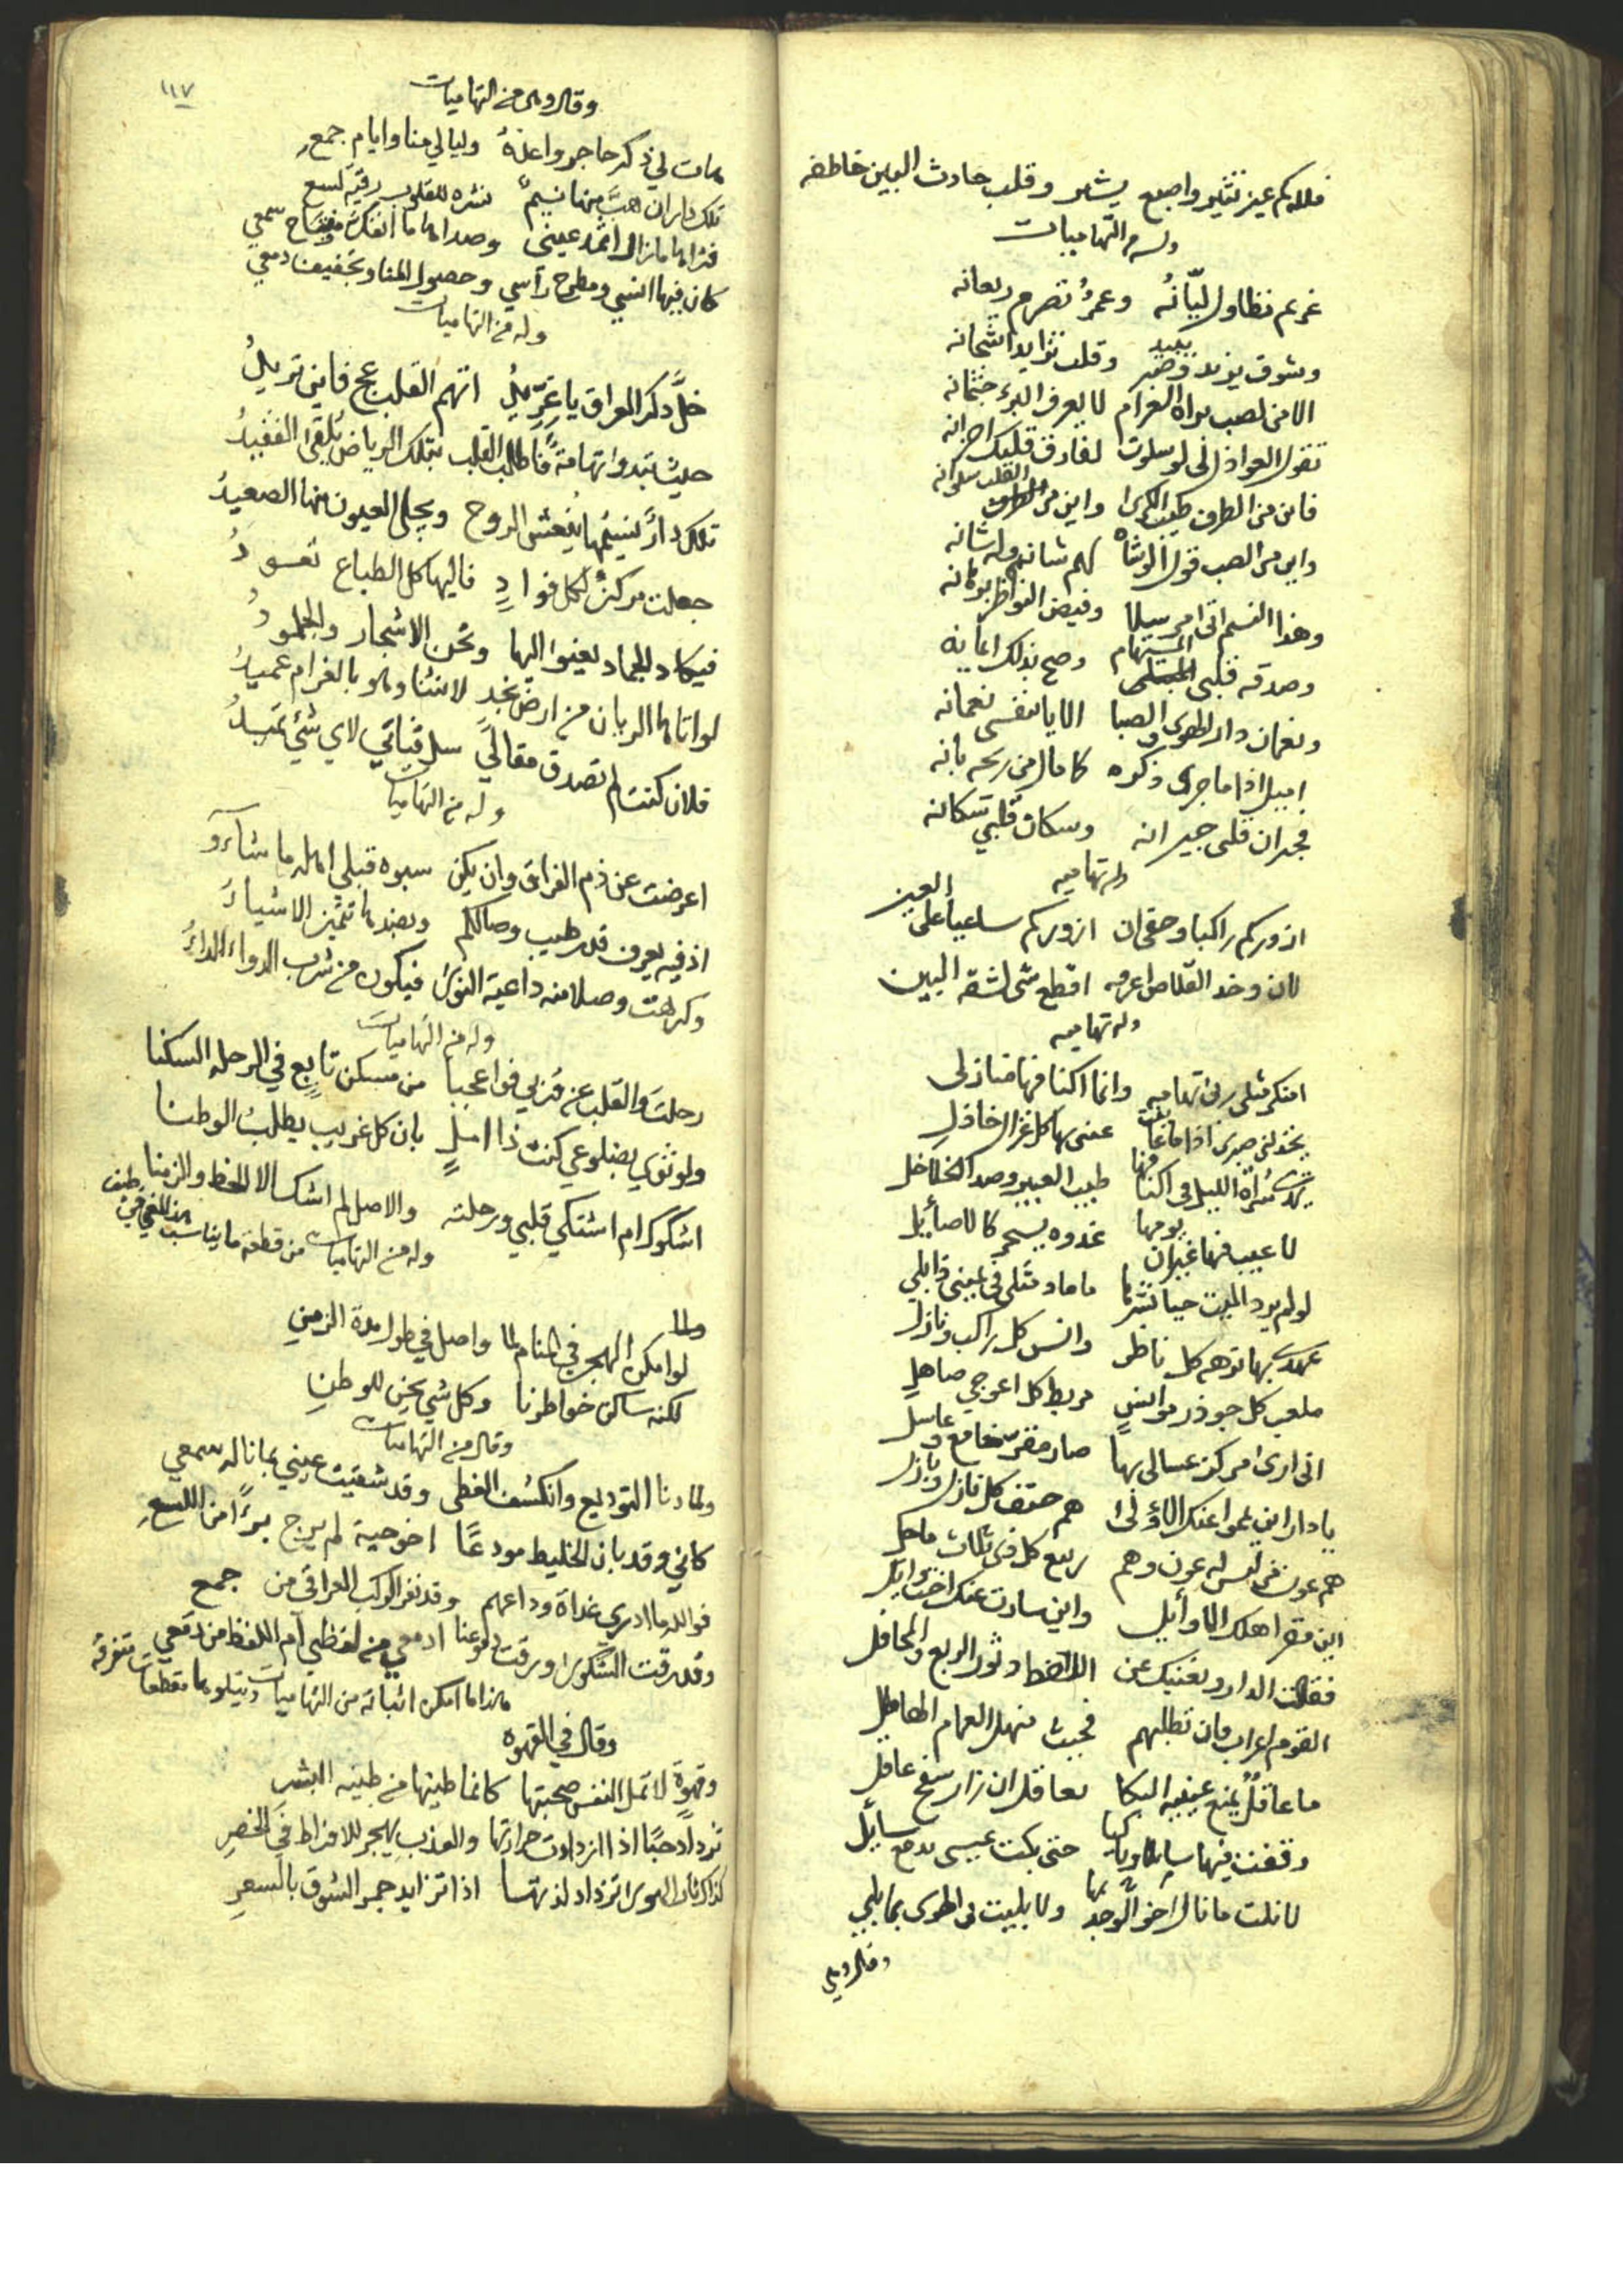 فلله كم عين تشير واصبع يشير وقلب حادث البين خاطفه
وله من التهاميات
غريم تطاول ليّانُه وعمرٌ تصرم ريعانه
وشوق يزيد وصبر يبيد وقلب تزايد اشجانه
الا من لصب براه الغرام لا يعرف البرء جثمانه
تقول العواذل لي لو سلوت لفارق قلبك احزانه
فاين من الطرف طيب الكرا واين من القلب سلوانه
واين من الصب قول الوشاه لهم شانهم وله شانه
وهذا النسيم اتى مرسلا وفيض النواظر برهانه
وصدقه قلبي المستهام وصح بذلك ايمانه
ونعمان دار الهوى والصبا الا يا بنفسي نعمانه
اميل اذا ما جرى ذكره كما مال من ريحه بانه
فجيران قلبي جيرانه وسكان قلبي سكانه
وله تهاميه
ازوركم راكبا وحق ان ازوركم ساعيا على العين
لان وخد القلاص اعرفه اقطع شي لشقة البين
وله تهاميه
امنكر مثلي ربى تهاميه وانما اكنافها منازلي
يخذلني صبري اذا ما غاب عني بها كل غزال خاذل
يهدي سراة الليل في اكنافها طيب العبير وصدا الخلاخل
لا عيب فيها غير ان يومها غدوه بسحر كالاصائل
لو لم يرد الميت حيا نشرها ما ماد مثلي في عيني ذابلي
عهدي بها نزهة كل ناظر وانس كل راكب ونازل
ملعب كل جوذر موانس مربط كل اعوجي صاهل
اني ارى مركز عسالي بها صار مقر خامع وعاسل
يا دار اين يمموا عنك الاولى هم حتف كل نازل وبازل
هم عون من ليس له عون وهم ربيع كل في ثلاث ماحل
اين مقر اهلك الاوائل واين سارت عنك اخت وائل
فقالت الدار ويغنيك عن
القوم اعراب فان تطلبهم فحيث منهل الغمام الهاطل
ما عاقل يمنع عينيه البكا بعاقل ان زار سفح عاقل
وقفت فيها سائلا وباكيا حتى بكت عيسي بدمع سائل
لا نلت ما نال اخو الوجد بها ولا بليت في الهوى بما بلي
وقال وهي
١١٧
وقال وهي من التهاميات
هات لي ذكر حاجر واعدهُ وليالي منا وايام جمعِ
تلك دار ان هبّ منها نسيمٌ نشره للقلب رقية لسع
فثراها ما زال اثمد عيني وصداها ما انفك مفتاح سمعي
كان فيها انسي ومطرح رأسي وحصول المنا وتجفيف دمعي
وله من التهاميات
خلّ ذكر العراق يا عِزّ يلُ اتهم القلب عج فاين تريدُ
حيث تبدوا تهامةً فاطلب القلب بتلك الرياض يُلقى الفقيدُ
تلك دارٌ نسيمُها يُنعش الروح ويجلى العيون منها الصعيدُ
جعلت مركزً لكل فوادٍ فاليها كل الطباع تعودُ
فيكاد الجماد يعنوا اليها وتحن الاشجار والجلمودُ
لو اتاها الريان من ارض نجد لانثنا وهو بالغرام عميدُ
فلان كنت لم تصدق مقاليَ سل قناتي لاي شئ تميدُ
وله من التهاميات
اعرضت عن ذم الفراق وان يكن سبوه قبلي اهله ما شاءوٓ
اذ فيه يعرف قدر طيب وصالكم وبضدها تتميز الاشياءُ
وكرهت وصلا منه داعية النوى فيكون من شرب الدواء الداءُ
وله من التهاميات
رحلتَ والقلب عن قربي فوا عجبا من مسكن تابعٍ في الرحله السكنا
ولو ثوى بضلوعي كنت ذا املٍ بان كل غريبٍ يطلبُ الوطنا
اشكوك ام اشتكي قلبي ورحلته والاصل لم اشك الا الحظ والزمنا
وله من التهاميات من قطعه ما يناسب هذا المعنى في طيف
ولما
لو امكن الهجر في المنام لما واصل في طول مدة الزمنِ
لكنه ساكن خواطرنا وكل شي يحن للوطنِ
وقال من التهاميات
ولما دنا التوديع وانكشف الغطى وقد شقيت عيني بما ناله سمعي
كاني وقد بان الخليط مودعًا اخو حية لم يرج برءًا من اللسعِ
فوالله ما ادري غداة وداعهم وقد نفر الركب العراقي من جمعِ
وقد رقت الشكوى ورقت دموعنا ادمعي من لفظي ام اللفظ من دمعي
هذا ما امكن اثباته من التهاميات ويتلوها مقطعات متفرقه
وقال في القهوه
وقهوةٍ لا تمل النفس صحبتها كانما طينها من طينه البشرِ
تزداد حبًا اذا ازدادت حرارتها والعذب يهجر للافراط في الخصرِ
كذاك نار الهوى تزداد لذتها اذا تزايد جمر الشوق بالسعرِ